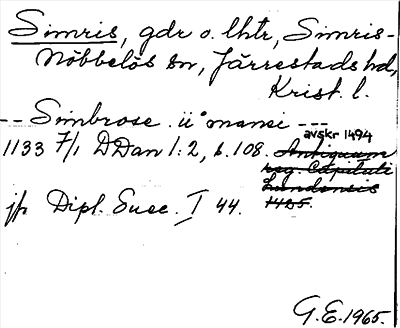 Simris, gdr o. lhtr, Simris-
Nöbbelöv sn, Järrestads hd,
Krist. l.
-- Simbrose . ii° mansi ---
avskr 1494
1133 7/1 DDan 1:2, s. 108. Antiquum
reg. Capituli
Lundensis
1485.
jfr Dipl. Suec. I 44.
G.E. 1965.